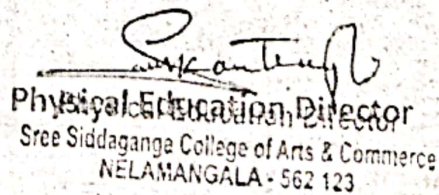 Physical Education Director
Sree Siddaganga College of Arts & Commerce
NELAMANGALA - 562 123